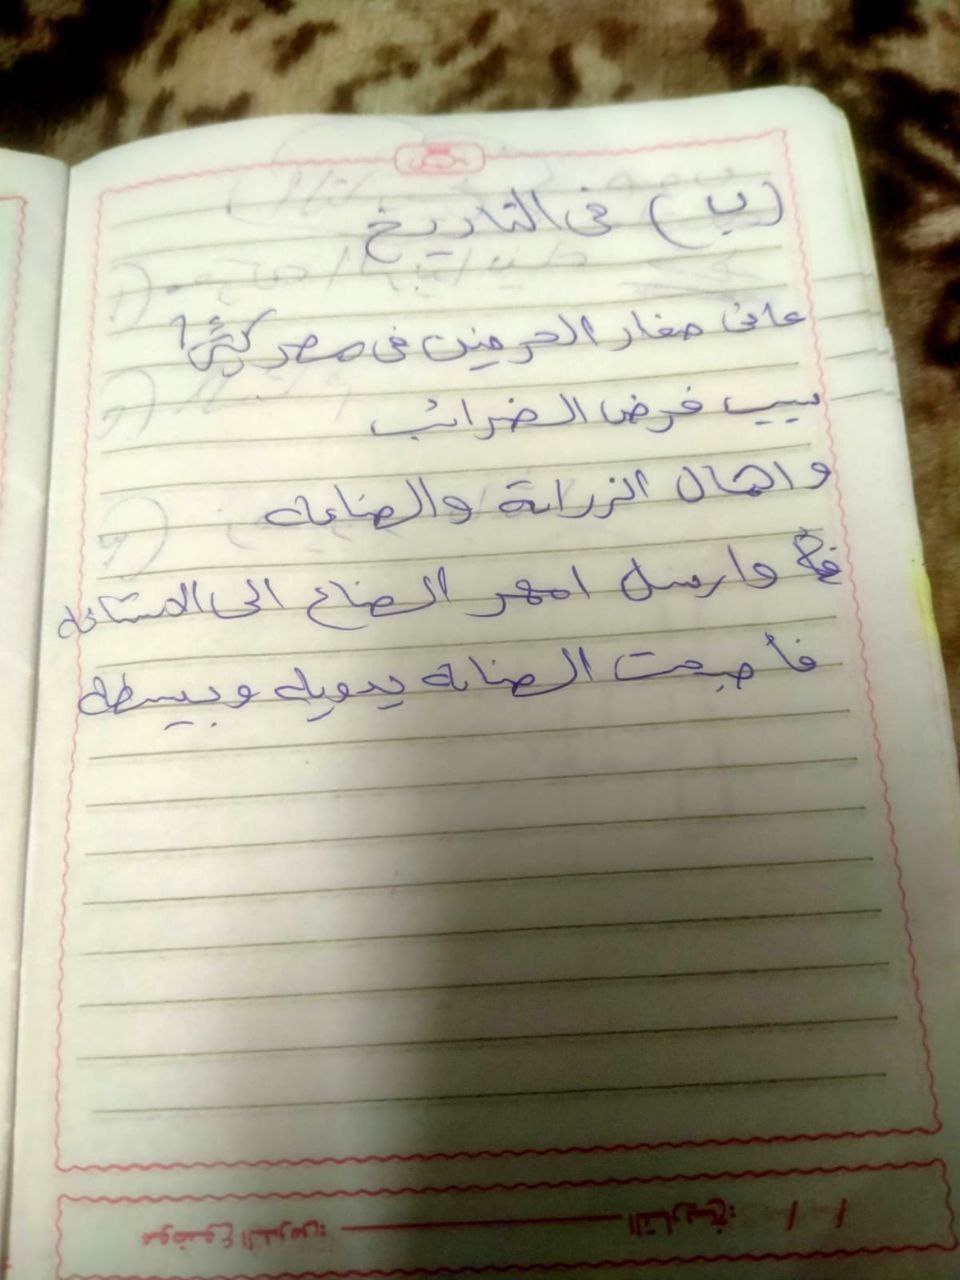 (ب) في التاريخ
عانى صغار الحرفين فى مصر كثيرًا
بسبب فرض الضرائب
واهمال الزراعة والصناعه
وارسل امهر الصناع الى الاستانه
فاصبحت الصناعه يدويه وبسيطه
التاريخ: / /
موضوع الدرس: